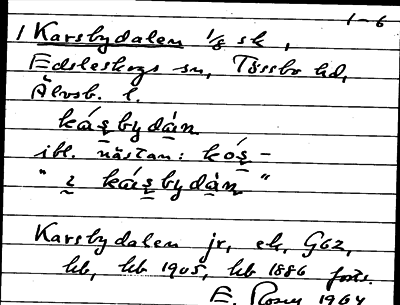 1-6
1 Karsbydalen 1/8 sk,
Edsleskogs sn, Tössbo hd,
Älvsb. l.
kás̱bydàṉ
ibl. nästan: kós̱-
" i̱ kás̱bydàṉ "
Karsbydalen jr, ek, G62,
hb, hb 1905, hb 1886 forts.
E. Rosén 1964